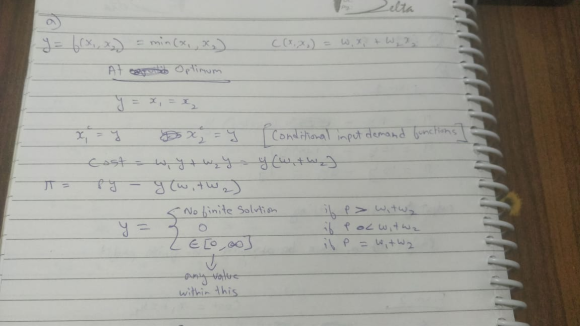 Delta
a)
y = f(x₁, x₂) = min(x₁, x₂) C(x₁, x₂) = w₁x₁ + w₂x₂
At Optimum
y = x₁ = x₂
x₁ᶜ = y x₂ᶜ = y [Conditional input demand functions]
Cost = w₁y + w₂y = y(w₁+w₂)
π = Py - y(w₁+w₂)
y = { No finite solution if P > w₁+w₂
0 if P < w₁+w₂
∈ [0, ∞] if P = w₁+w₂
↓
any value
within this